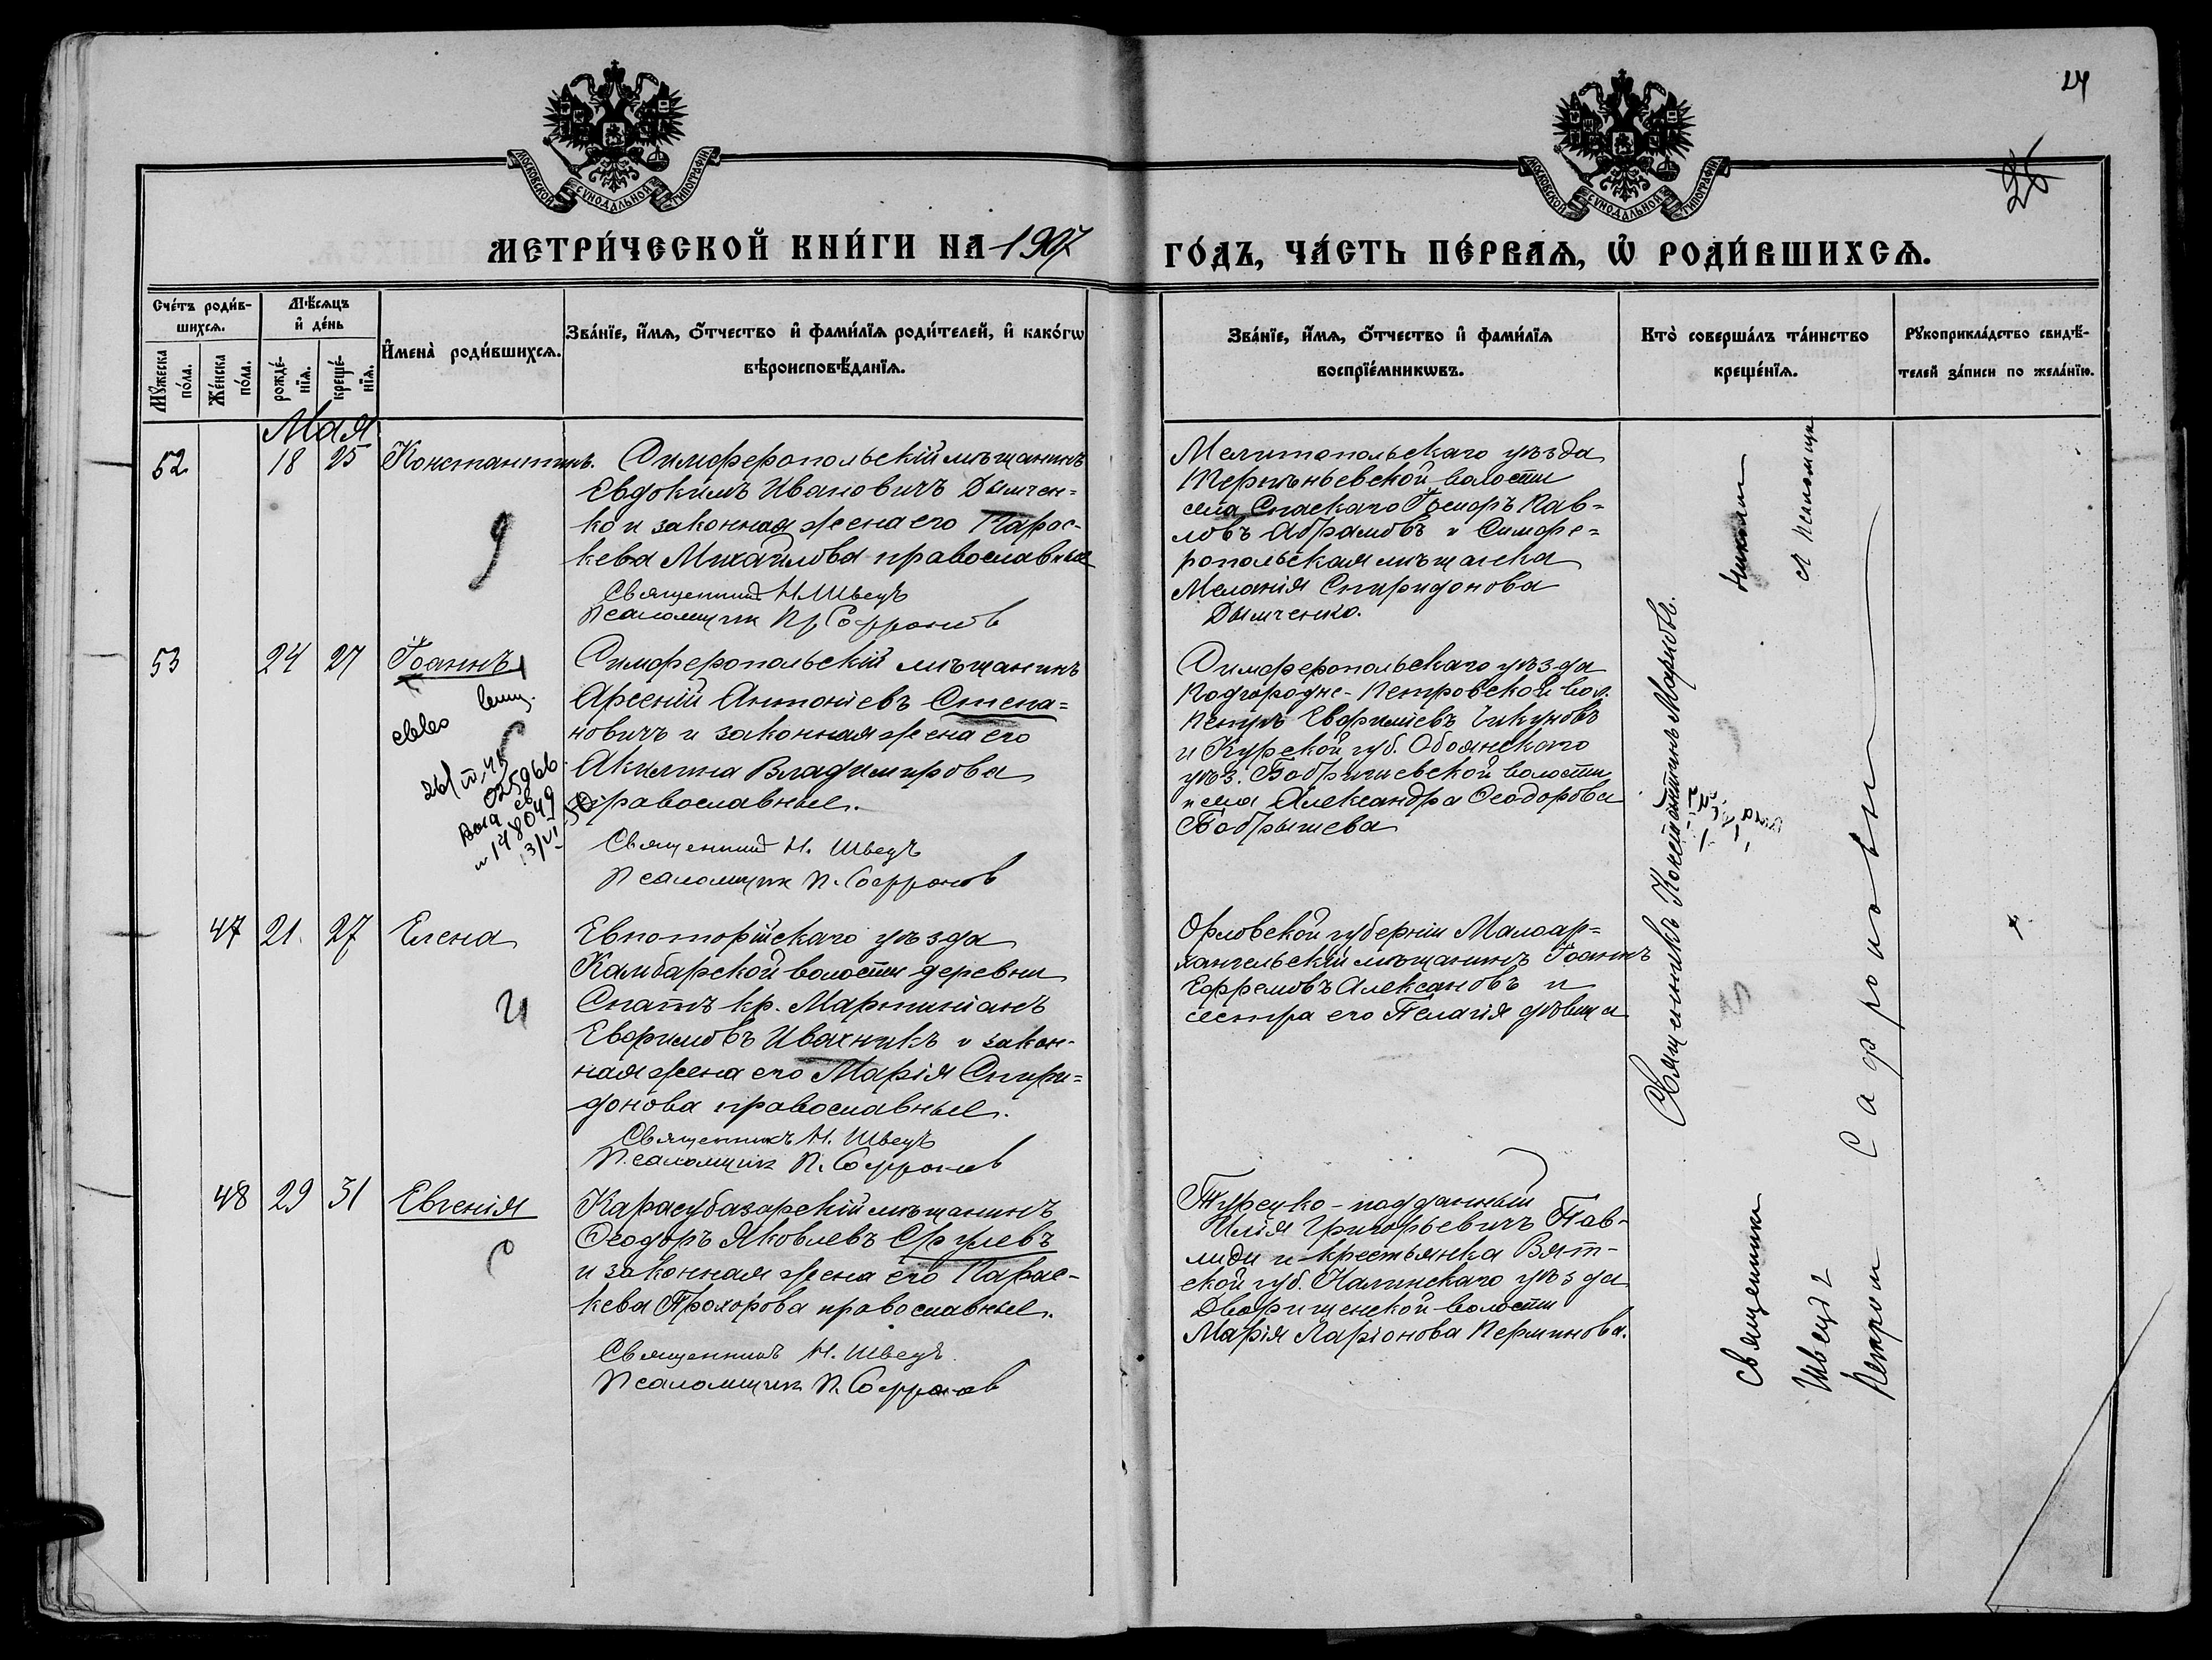 24
МОСКОВСКОЙ СѴНОДАЛЬНОЙ ТИПОГРАФІИ
МОСКОВСКОЙ СѴНОДАЛЬНОЙ ТИПОГРАФІИ
МЕТРИ́ЧЕСКОЙ КНИ́ГИ НА 1907
ГО́ДЪ, ЧА́СТЬ ПЕ́РВАѦ, Ѡ҆ РОДИ́ВШИХСѦ.
Сче́тъ роди́в-
шихсѧ.
Мꙋ́жеска по́ла.
Же́нска по́ла.
Мѣ́сѧцъ
и҆ де́нь
рожде́-
нїѧ.
креще́-
нїѧ.
И҆мена̀ роди́вшихсѧ.
Зва́нїе, и҆́мѧ, ѻ҆́тчество и҆ фами́лїѧ роди́телей, и҆ како́гѡ
вѣроисповѣ́данїѧ.
Зва́нїе, и҆́мѧ, ѻ҆́тчество и҆ фами́лїѧ
воспрїе́мникѡвъ.
Кто̀ соверша́лъ та́инство
креще́нїѧ.
Рꙋкоприкла́дство свидѣ́-
телей за́писи по жела́нїю.
Мая
52 18 25 Константинъ.
Симферопольскій мѣщанинъ
Евдокимъ Ивановичъ Дымчен=
ко и законная жена его Парас-
кева Михайлова православные
Священник Н. Швецъ
Псаломщик П. Софронов
Мелитопольскаго уѣзда
волости
села Спаскаго Ѳеодоръ Пав-
ловъ Абрамовъ и Симфе=
ропольская мѣщанка
Меланія Спиридонова
Дымченко.
53 24 27 Іоаннъ
Симферопольскій мѣщанинъ
Арсеній Антоніевъ Степа=
новичъ и законная жена его
Акилина Владимирова
православные.
Священник Н. Швецъ
Псаломщик П. Софронов
025966
148049
Симферопольскаго уѣзда
Подгородне-Петровской вол.
Петръ Евфиміевъ Чикуновъ
и Курской губ. Обоянскаго
уѣз. волости
Александра Ѳеодорова
Бобрышева
47 21. 27 Елена
Евпаторійскаго уѣзда
Камбарской волости деревни
Спатъ кр. Мартиніанъ
Евфимовъ Ивахникъ и закон-
ная жена его Марія Спири=
донова православные.
Священникъ Н. Швецъ
Псаломщик П. Софронов
Орловской губерніи Малоар=
хангельскій мѣщанинъ Іоаннъ
Ефремовъ Алексановъ и
сестра его Пелагія дѣвица
48 29 31 Евгенія
Карасубазарскій мѣщанинъ
Ѳеодоръ Яковлевъ
и законная жена его Парас-
кева Прохорова православные.
Священникъ Н. Швецъ
Псаломщик П. Софронов
Турецко-подданный
Илія Григорьевичъ Пав-
лиди и крестьянка Вят-
ской губ. уѣзда
Дворищенской волости
Марія Ларіонова Перминова.
Священникъ Константинъ Марковъ.
Священник Николай
Швец и Псаломщик
Петр Сафроновъ